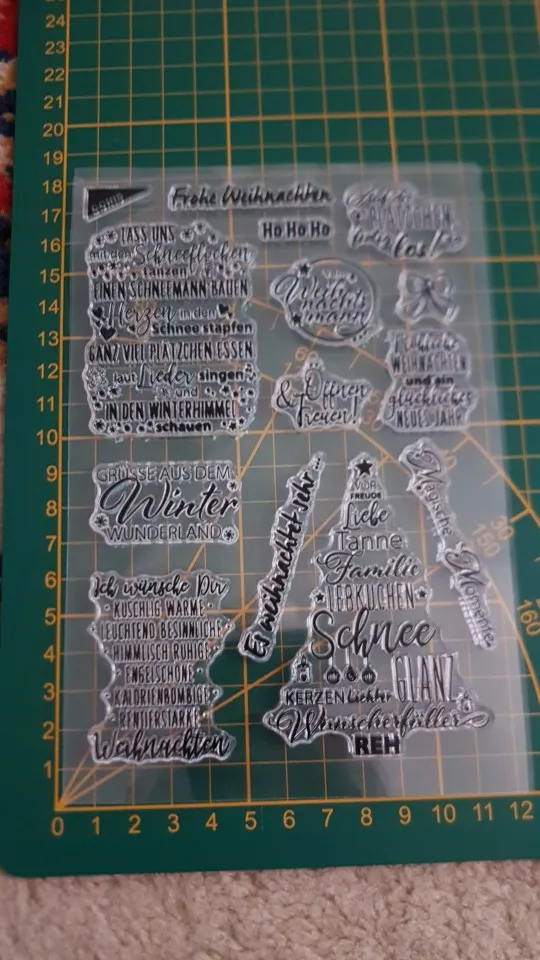 26
25
24
23
22
21
20
19
18
17
16
15
14
13
12
11
10
9
8
7
6
5
4
3
2
1
0 1 2 3 4 5 6 7 8 9 10 11 12
Frohe Weihnachten
Ho Ho Ho
PLÄTZCHEN
fertig los!
LASS UNS
mit den Schneeflocken
tanzen
EINEN SCHNEEMANN BAUEN
Herzen in den
Schnee stapfen
GANZ VIEL PLÄTZCHEN ESSEN
laut Lieder singen
und
IN DEN WINTERHIMMEL
schauen
Weih
nachts
mann
Fröhliche
WEIHNACHTEN
und ein
glückliches
NEUES JAHR
Öffnen
& Freuen!
GRÜSSE AUS DEM
Winter
WUNDERLAND
Es weihnachtet sehr...
VOR
FREUDE
Liebe
Tanne
Familie
LEBKUCHEN
Schnee
GLANZ
KERZEN Lichter
Wünscheerfüller
REH
Magische
Momente
Ich wünsche Dir
KUSCHLIG WARME
LEUCHTEND BESINNLICHE
HIMMLISCH RUHIGE
ENGELSCHÖNE
KALORIENBOMBIGE
RENTIERSTARKE
Weihnachten
60
30
160